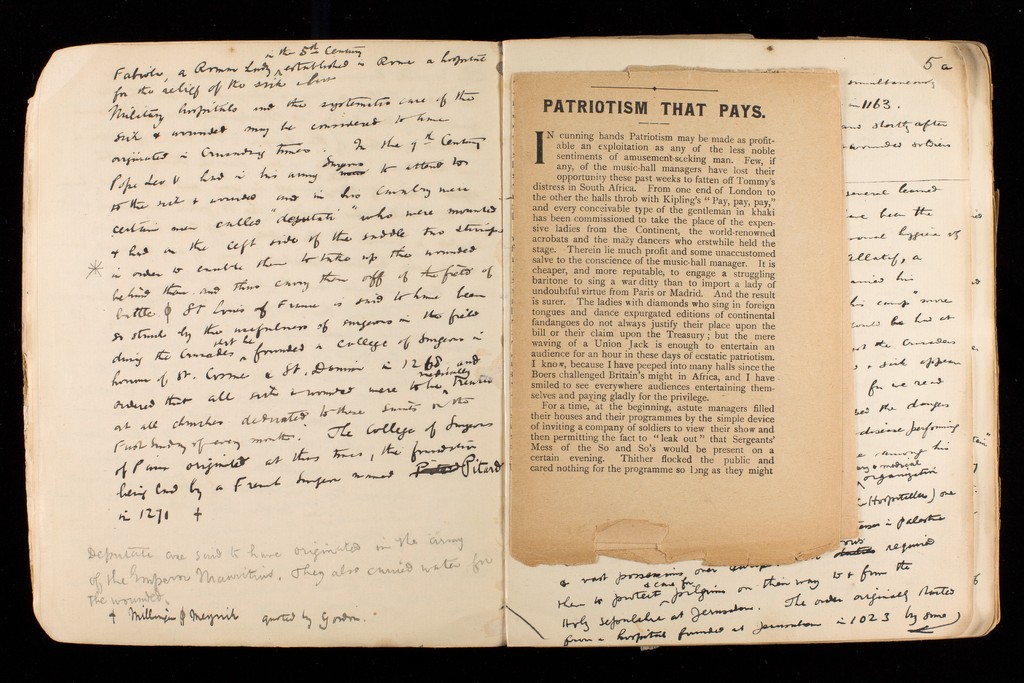 in the 5th Century
Fabiola, a Roman Lady, established in Rome a hospital
for the relief of the sick
Military hospitals and the systematic care of the
sick & wounded may be considered to have
originated in Crusading times. In the 9th Century
Pope Leo V had in his army Surgeons to attend to
to the sick & wounded and in his Cavalry were
certain men called "deputati" who were mounted
& had on the left side of the saddle two stirrups
in order to enable them to take up the wounded
behind them and thus carry them off of the field of
battle St Louis of France is said to have been
so struck by the usefulness of surgeons in the field
during the Crusades that he founded a College of Surgeons in
honour of St. Cosme & St. Damien in 1268, and
ordered that all sick & wounded were to be medically treated
at all churches dedicated to these saints on the
First Sunday of every month. The College of Surgeons
of Paris originated at this time, the foundation
being laid by a French Surgeon named Pitard
in 1271 +
Deputate are said to have originated in the army
of the Emperor Mauritius. They also carried water for
the wounded.
+ Millingen quoted by Gordon.
5a
PATRIOTISM THAT PAYS.
IN cunning hands Patriotism may be made as profit-
able an exploitation as any of the less noble
sentiments of amusement-seeking man. Few, if
any, of the music-hall managers have lost their
opportunity these past weeks to fatten off Tommy's
distress in South Africa. From one end of London to
the other the halls throb with Kipling's "Pay, pay, pay,"
and every conceivable type of the gentleman in khaki
has been commissioned to take the place of the expen-
sive ladies from the Continent, the world-renowned
acrobats and the mazy dancers who erstwhile held the
stage. Therein lie much profit and some unaccustomed
salve to the conscience of the music-hall manager. It is
cheaper, and more reputable, to engage a struggling
baritone to sing a war ditty than to import a lady of
undoubtful virtue from Paris or Madrid. And the result
is surer. The ladies with diamonds who sing in foreign
tongues and dance expurgated editions of continental
fandangoes do not always justify their place upon the
bill or their claim upon the Treasury; but the mere
waving of a Union Jack is enough to entertain an
audience for an hour in these days of ecstatic patriotism.
I know, because I have peeped into many halls since the
Boers challenged Britain's might in Africa, and I have
smiled to see everywhere audiences entertaining them-
selves and paying gladly for the privilege.
For a time, at the beginning, astute managers filled
their houses and their programmes by the simple device
of inviting a company of soldiers to view their show and
then permitting the fact to "leak out" that Sergeants'
Mess of the So and So's would be present on a
certain evening. Thither flocked the public and
cared nothing for the programme so long as they might
simultaneously
in 1163.
and shortly after
wounded soldiers
several learned
been the
hygiene of
a
his
his camp
could be had at
the Crusaders
& sick
for we read
the dangers
disease performing
among his
& medical
organization
(Hospitallers) one
in Palestine
& vast possessions over required
them to protect & care for pilgrims on their way to & from the
Holy Sepulchre at Jerusalem. The order originally started
from a hospital founded at Jerusalem in 1023 by some